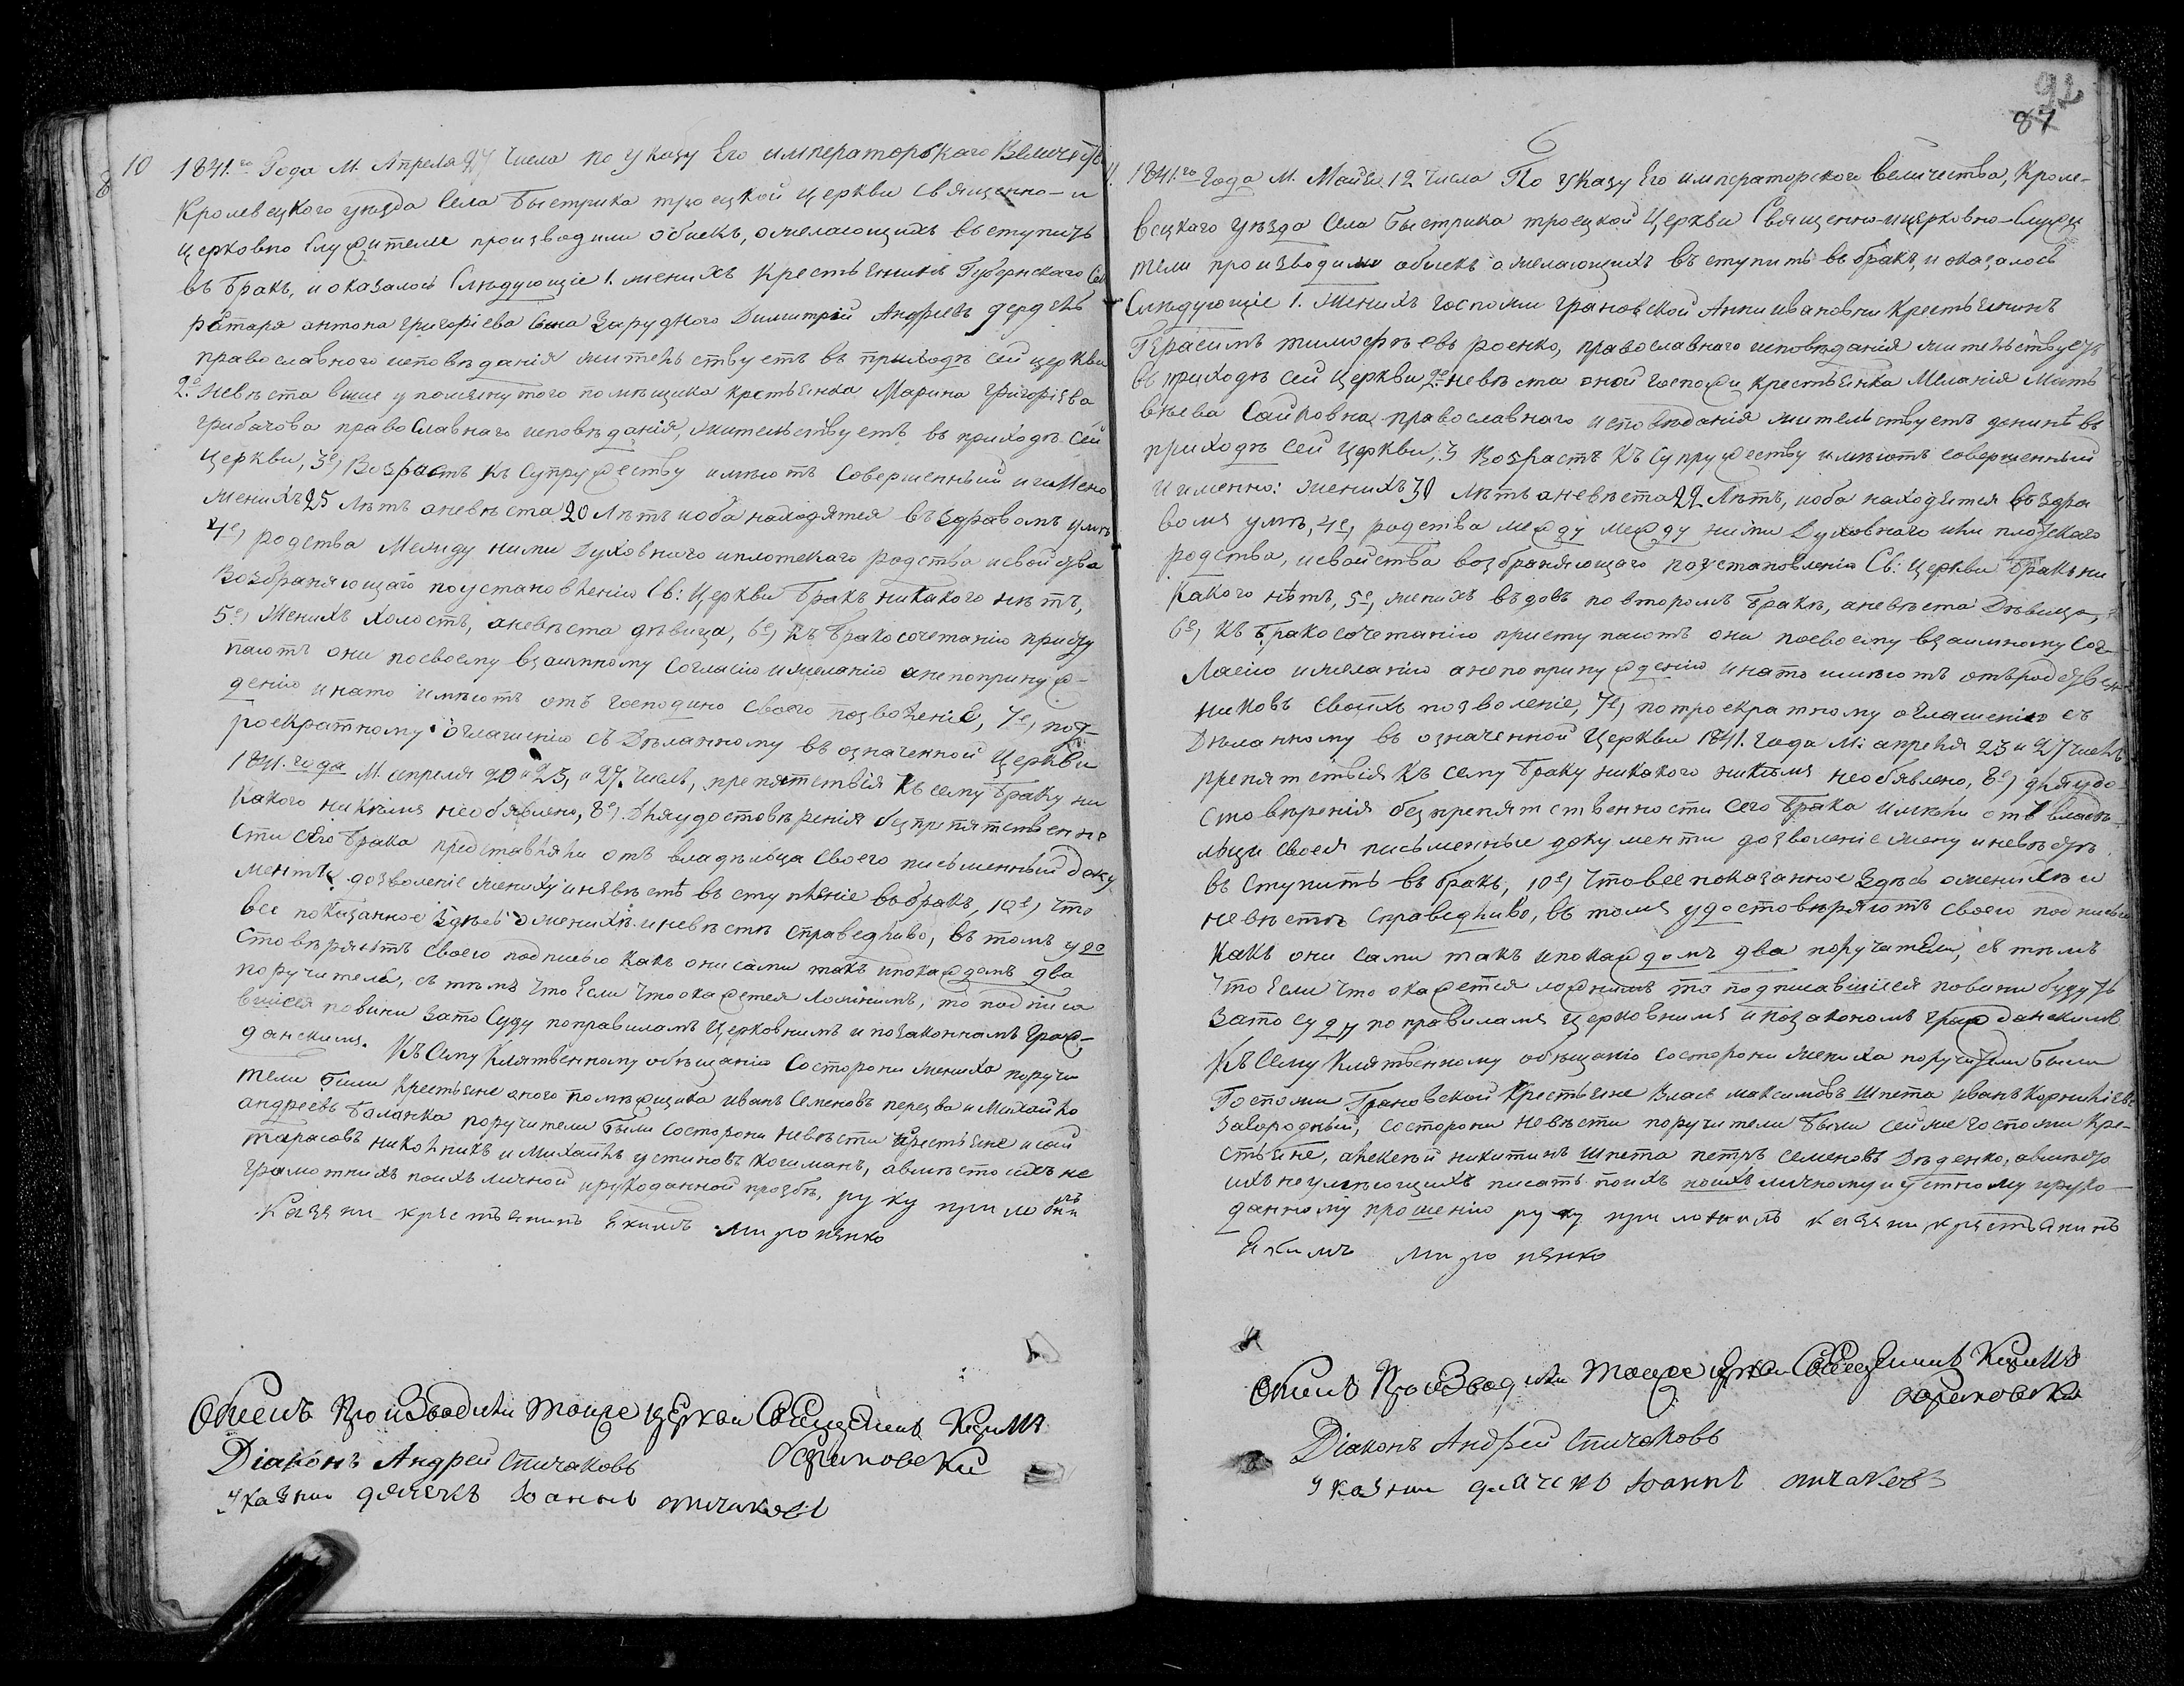 10 1841.го Года М. Апреля 27 числа по указу Его императорскаго Величества
Кролевецкого уезда Села Быстрика троецкой церкви священно- и
церковно служители производили обискъ, ожелающихъ вступить
въ бракъ, и оказалось Следующіе 1. женихъ крестьенинъ Губернского Сек
ретаря антона григоріева сина Зарудного Димитрій Андреевъ
православного исповеданія жительствуетъ въ приходе сей церкви
2.е невеста више упомянутого помещика крестьенка Марина григоріева
грибачова православнаго исповеданія, жительствуетъ въ приходе сей
церкви, 3е, Возрастъ къ Супружеству имеютъ Совершенный и именно
женихъ 25 летъ аневеста 20 летъ иоба находятся въ здравомъ уме
4е, родства Между ними Духовного иплотскаго родства исвойства
Возбраняющаго поустановленію Св: Церкви бракъ никакого нетъ,
5е, Женихъ холостъ, аневеста девица, 6е, къ бракосочетанію присту
паютъ они посвоему взаимному согласію ижеланію анепопринуж-
денію инато имеютъ отъ господина своего позволеніе, 7е, пот-
роекратному оглашенію сделанному въ означенной Церкви
1841. года М. апреля 20 и 23, и 27. числъ, препятствія къ сему браку ни
какого никемъ необявлено, 8е, Для удостоверенія безпрепятственно
сти сего брака представляли отъ владельца своего письменный доку
ментъ дозволеніе жениху иневесте въ ступленіе вбракъ, 10е, что
все показанное здесь оженихе иневесте справедливо, въ томъ удо
стоверяютъ своею подписью какъ они сами такъ ипокаждомъ два
поручителя, съ темъ что Если что окажется ложнимъ, то подписа
вшіеся повини зато Суду поправиламъ Церковнимъ и позаконнамъ граж-
данскимъ. Къ Сему Клятвенному обещанію состорони жениха поручи
тели били крестьяне оного помещика иванъ Семеновъ перезва и Михайло
андреевъ баланка поручители были состорони невести крестьяне
тарасовъ и Михаилъ устиновъ
грамотнихъ поихъ личной ирукоданной прозбе, руку приложилъ
казени крестянинъ Якимъ Мироненко
Обискъ Производили тоиже церкви Священикъ Козма
Діаконъ Андрей Спичаковъ
указний дячекъ Іоаннъ спичаковъ
92
87
6
11. 1841.го года М. Маія. 12 числа По указу Его императорского величества, Кроле-
вецкаго уезда села Быстрика троецкой Церкви Священно-ицерковно-Служи
тели производили обискъ ожелающихъ въступить въ бракъ, и оказалось
Следующіе 1. женихъ госпожи грановской Анни ивановни крестьенинъ
Герасимъ тимофеевъ роенко, православнаго исповеданія жительствуетъ
въ приходе сей Церкви, 2е невеста оной госпожи крестьенка Меланія Мат
веева православнаго исповеданія жительствуетъ донине въ
приходе сей церкви, 3 Возрастъ къ Супружеству имеютъ совершенный
и именно: женихъ 30 летъ аневеста 22 летъ, иоба находятся въ здра
вомъ уме, 4е, родства между между ними Духовнаго или плотскаго
родства, исвойства возбраняющаго поустановленію Св: Церкви бракъ ни
какого нетъ, 5е, женихъ въдовъ повторомъ браке, аневеста Девица,
6е, къ бракосочетанію приступаютъ они посвоему взаимному сог-
ласію ижеланію анепопринуждению инато имеютъ отъ родствен
никовъ своихъ позволеніе, 7е, потроекратному оглашению с
Деланному въ означенной Церкви 1841. года М: апреля 23 и 27 числъ
препятствія къ сему браку никакого никемъ необявлено, 8е, для удо
стоверенія безпрепятственности сего брака имели отъ владе-
льци своея письменные документи дозволеніе жениху иневесте
въ ступить въ бракъ, 10е, что все показанное здесь оженихе и
невесте справедливо, въ томъ удостоверяютъ своею подписью
какъ они сами такъ ипокаждомъ два поручители, съ темъ
что Если что окажется ложнимъ то подписавшіеся повини будутъ
зато суду поправиламъ церковнимъ ипозаконамъ гражданскимъ
Къ Сему Клятвенному обещанію состорони жениха поручители были
Госпожи Грановской крестьяне Власъ максимовъ шпета иванъ корниліевъ
Завгородный, состорони невести поручители были сейже госпожи кре-
стьяне, алексей никитинъ шпета петръ семеновъ Деденко, авместо
ихъ неумеющихъ писать поихъ поихъ личному и устному ируко-
данному прошенію руку приложилъ казени крестянинъ
Якимъ Мироненко
Обискъ Производили тоиже церкви Священикъ Козма
Діаконъ Андрей Спичаковъ
указний дячекъ Іоаннъ спичаковъ